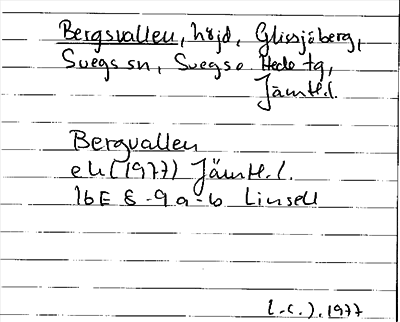 Bergsvallen, höjd, Glissjöberg,
Svegs sn, Svegs o Hede tg,
Jämtl.l.
Bergvallen
ek (1977) Jämtl.l.
16E 8-9 a-b Linsell
1977